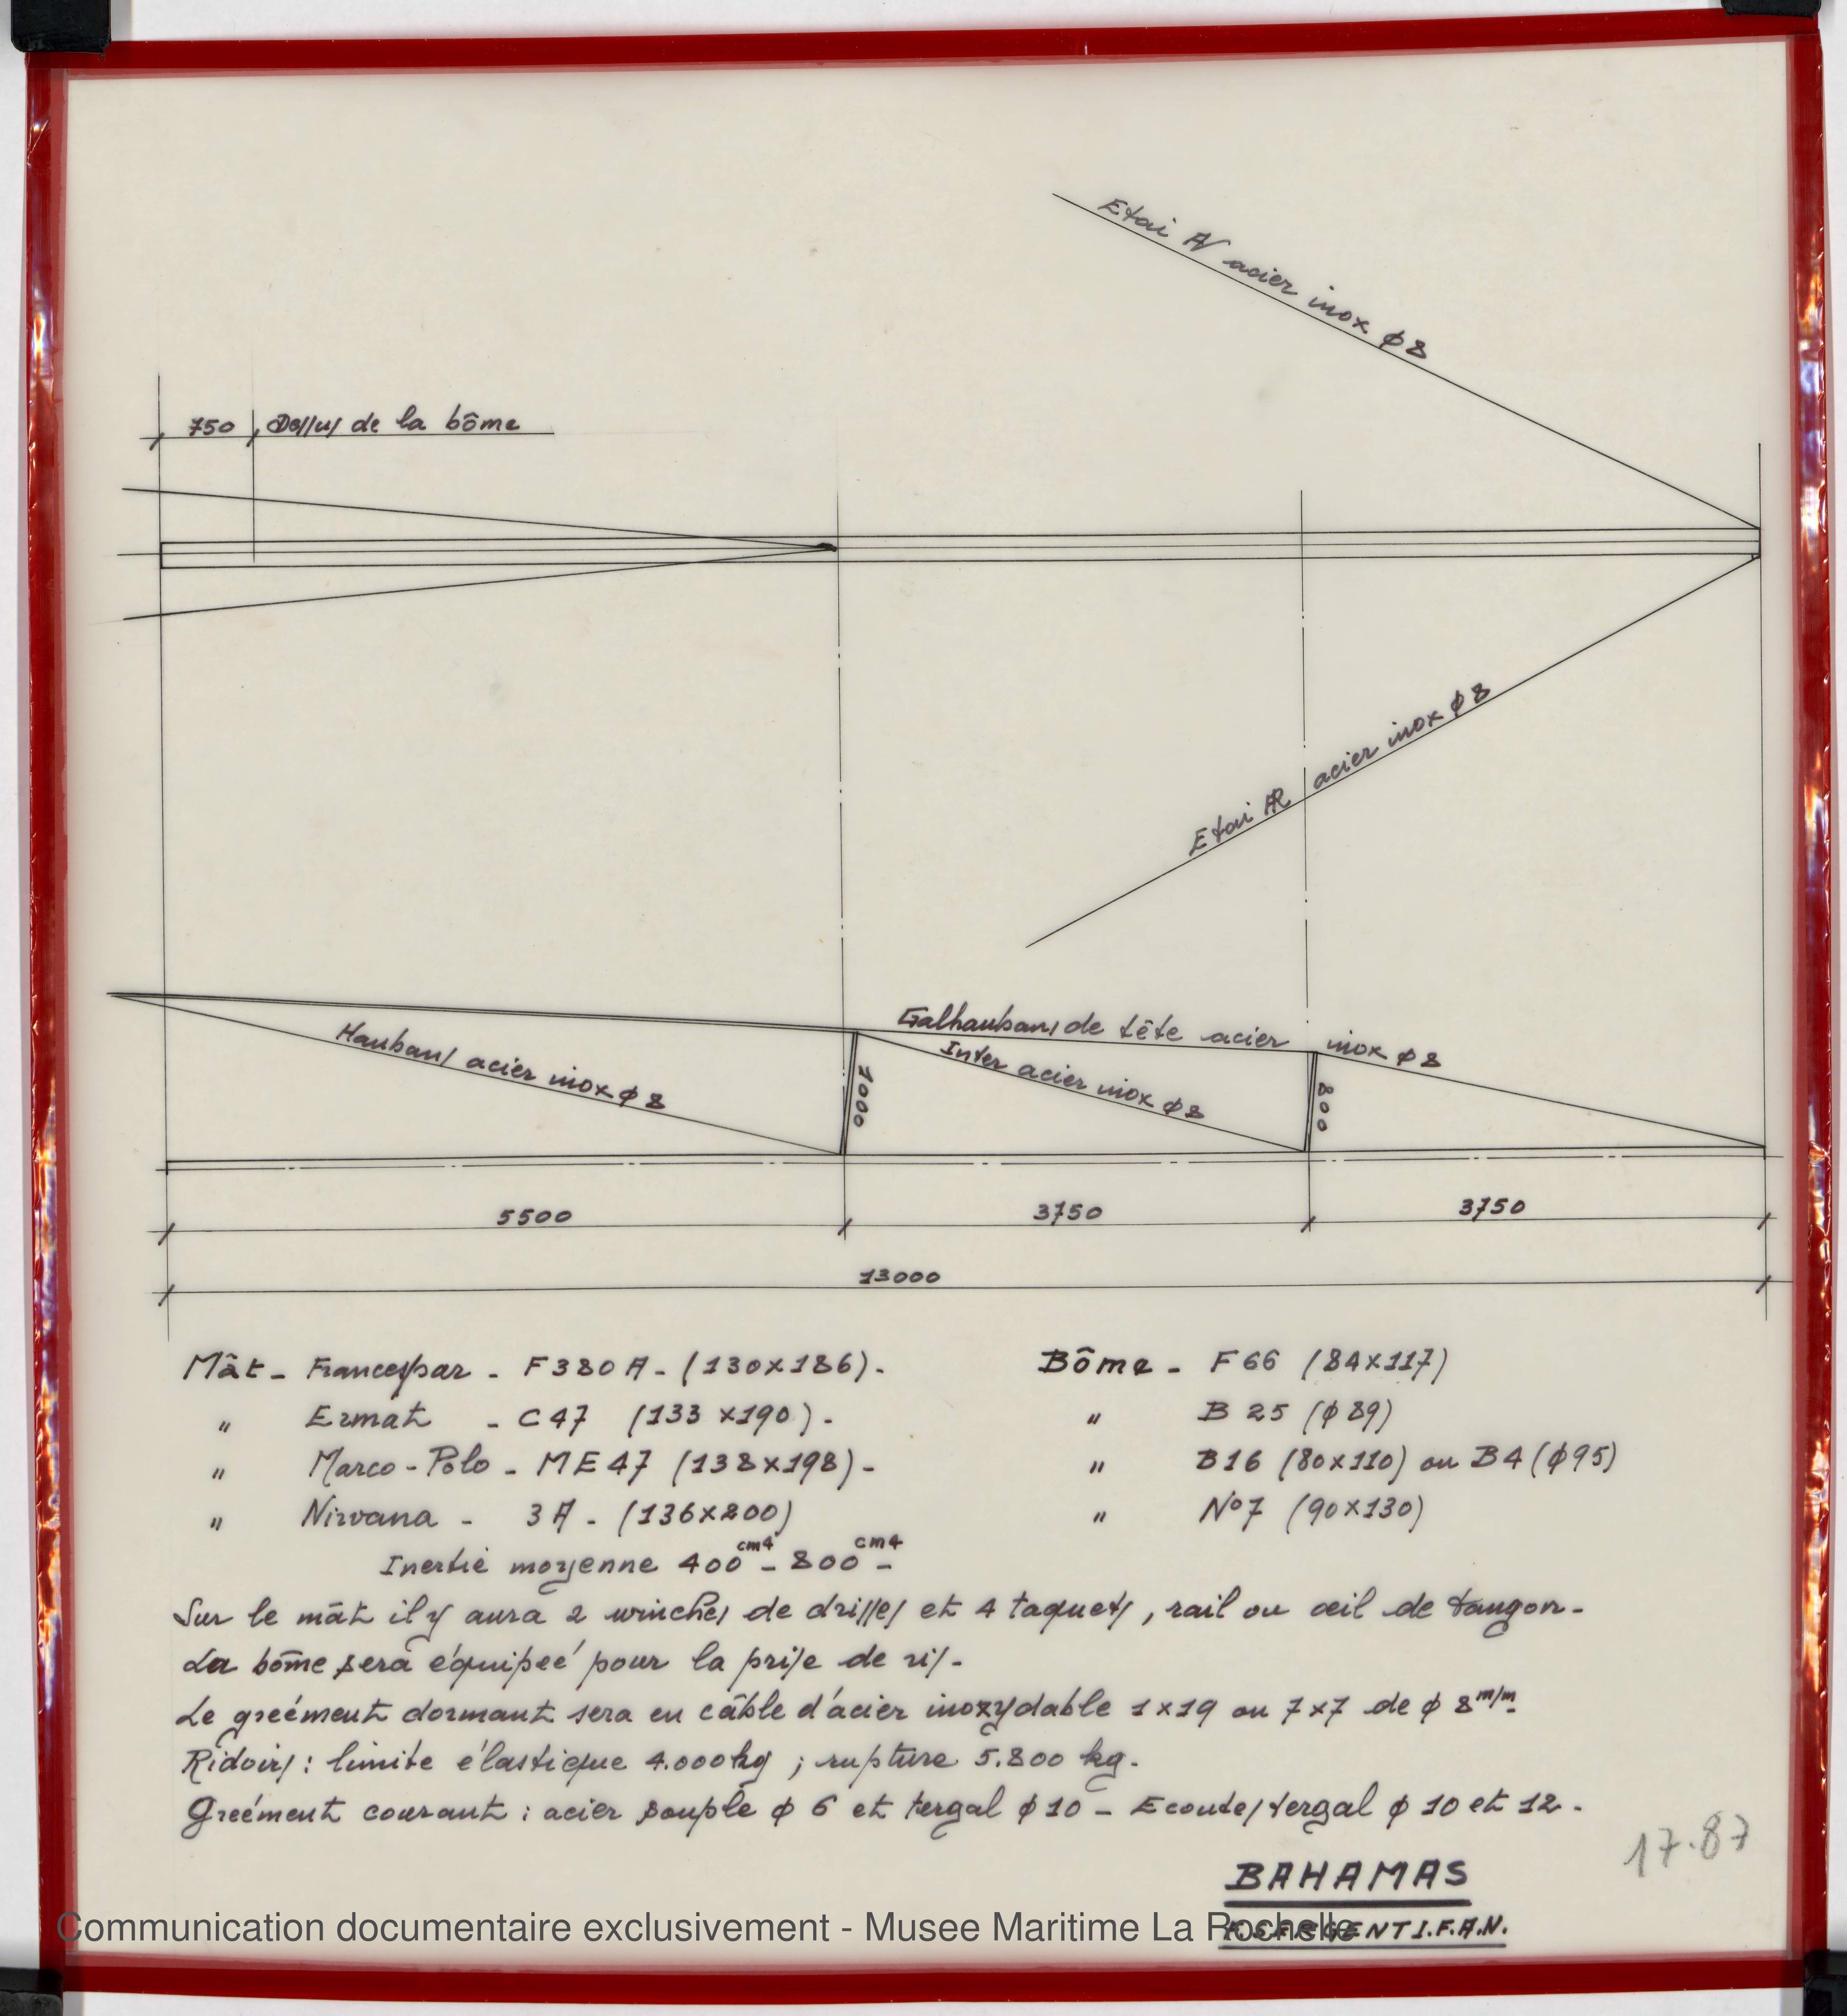 Etai AV acier inox φ8
750 Dessus de la bôme
Etai AR acier inox φ8
Galhaubans de tête acier inox φ8
Haubans acier inox φ8
Inter acier inox φ8
1000
800
5500
3750
3750
13000
Mât - Francespar - F380A - (130x186) -
Bôme - F66 (84x117)
" Ermat - C47 (133x190) -
" B25 (φ89)
" Marco-Polo - ME47 (138x198) -
" B16 (80x110) ou B4 (φ95)
" Nirvana - 3A - (136x200)
" N°7 (90x130)
Inertie moyenne 400cm4 - 800cm4 -
Sur le mât il y aura 2 winches de drisses et 4 taquets, rail ou œil de tangon -
La bôme sera équipée pour la prise de ris -
Le gréement dormant sera en câble d'acier inoxydable 1x19 ou 7x7 de φ 8m/m -
Ridoirs : limite élastique 4.000kg ; rupture 5.800 kg.
Gréement courant : acier souple φ 6 et tergal φ10 - Ecoutes tergal φ 10 et 12 -
17.87
BAHAMAS
Communication documentaire exclusivement - Musee Maritime La Rochelle
I.F.A.N.